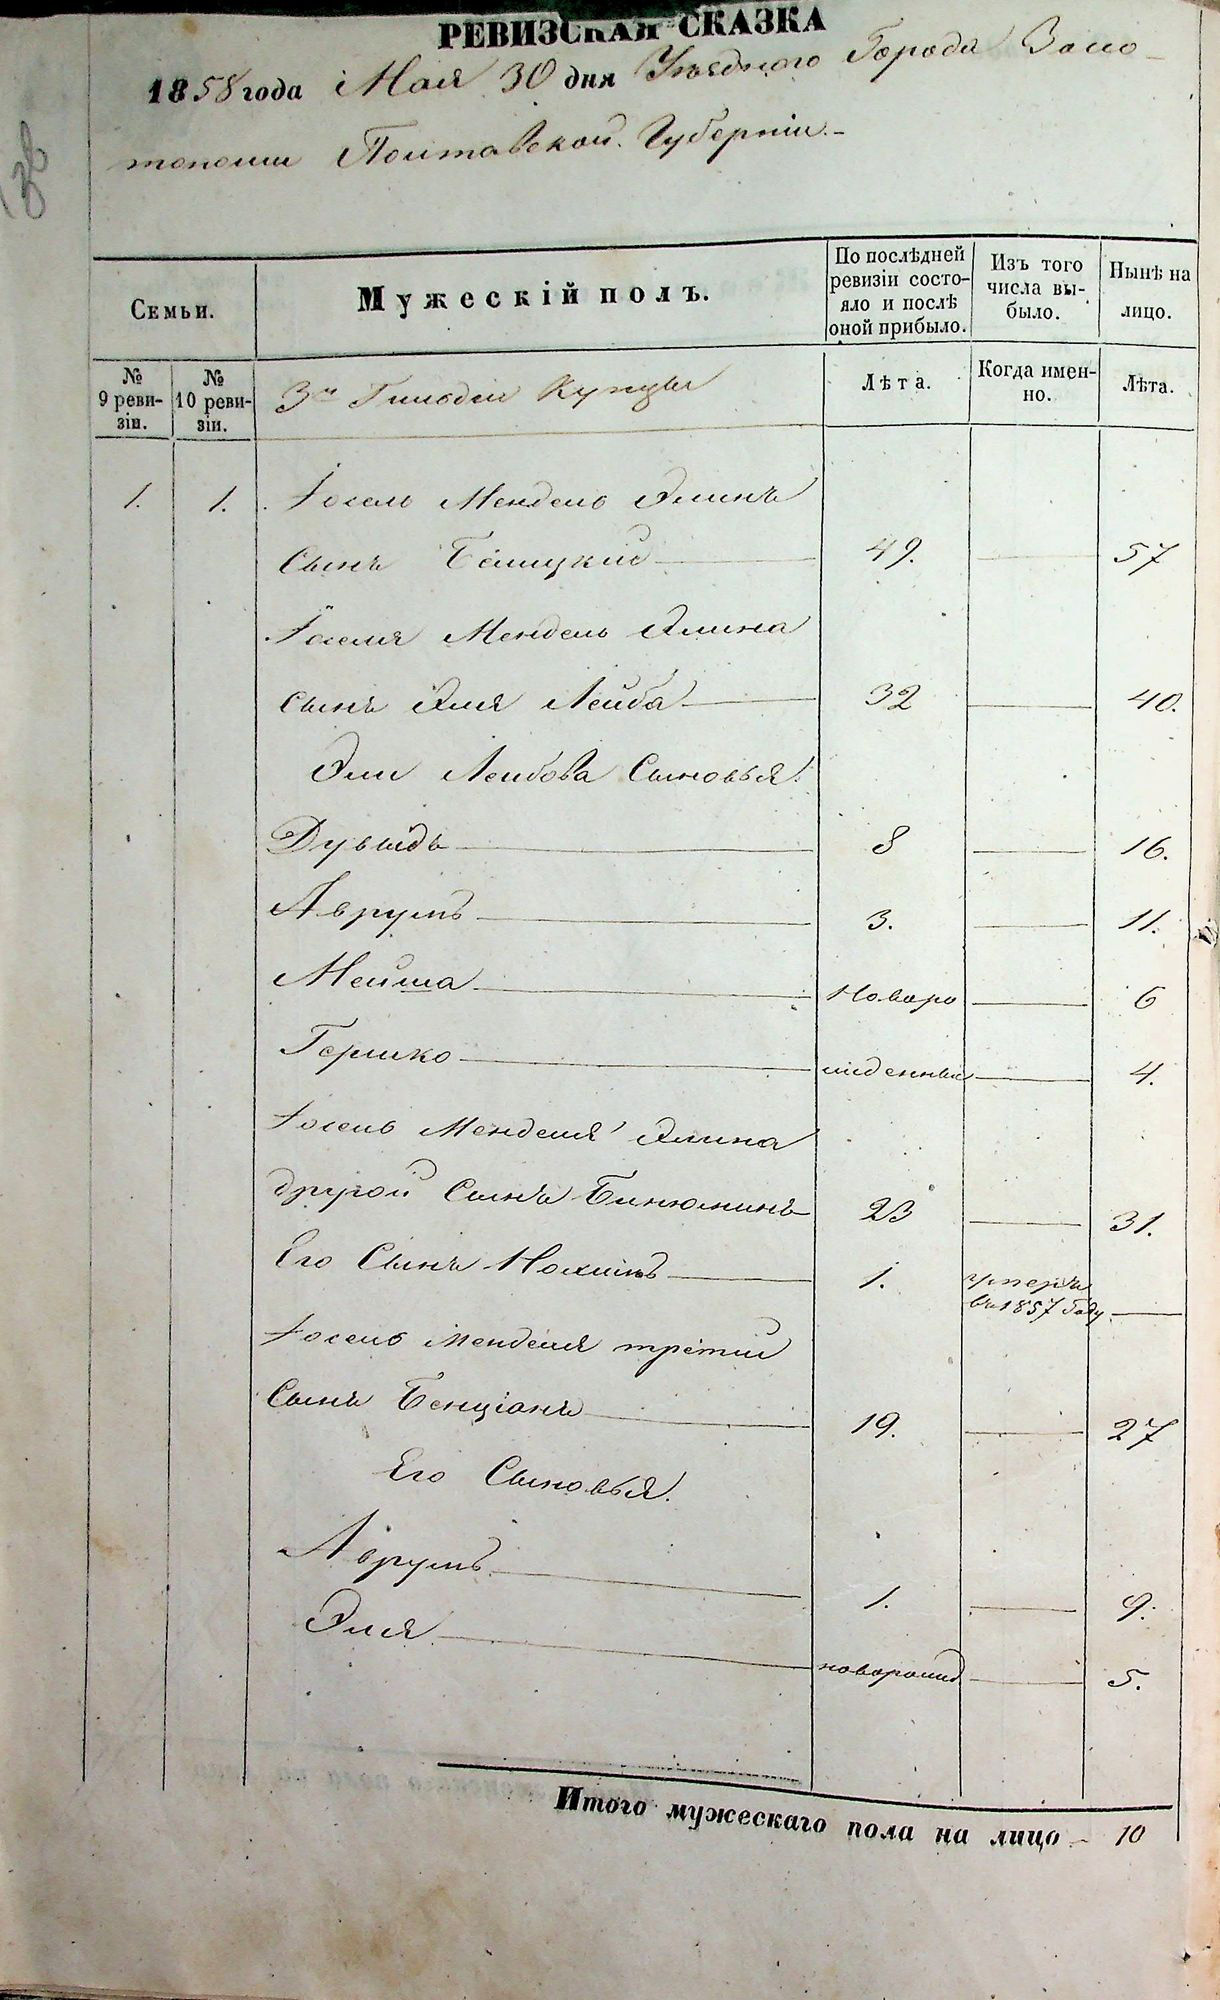 РЕВИЗСКАЯ СКАЗКА
1858 года Мая 30 дня Уѣзднаго Города Золо-
тоноши Полтавской Губерніи.-
Семьи.
Мужескій полъ.
По послѣдней ревизіи состо-яло и послѣ оной прибыло.
Изъ того числа вы-было.
Нынѣ на лицо.
№ 9 реви-зіи.
№ 10 реви-зіи.
3й Гильдіи Купцы
Лѣта.
Когда имен-но.
Лѣта.
1. 1. Іосель Мендель Элинъ
Сынъ 49. 57
Іоселя Мендель Элина
сынъ Эля Лейба 32 40.
Эли Лейбова Сыновья:
Дувыдъ 8 16.
Аврумъ 3. 11.
Мейша новоро 6
Гершко жденныи 4.
Іосель Менделя Элина
другой Сынъ Бинюминъ 23 31.
Его Сынъ Нохимъ 1. умеръ
въ 1857 Году
Іосель Менделя третій
Сынъ Бенціонъ 19. 27
Его Сыновья.
Аврумъ 1. 9.
Эля новорожд 5.
Итого мужескаго пола на лицо - 10